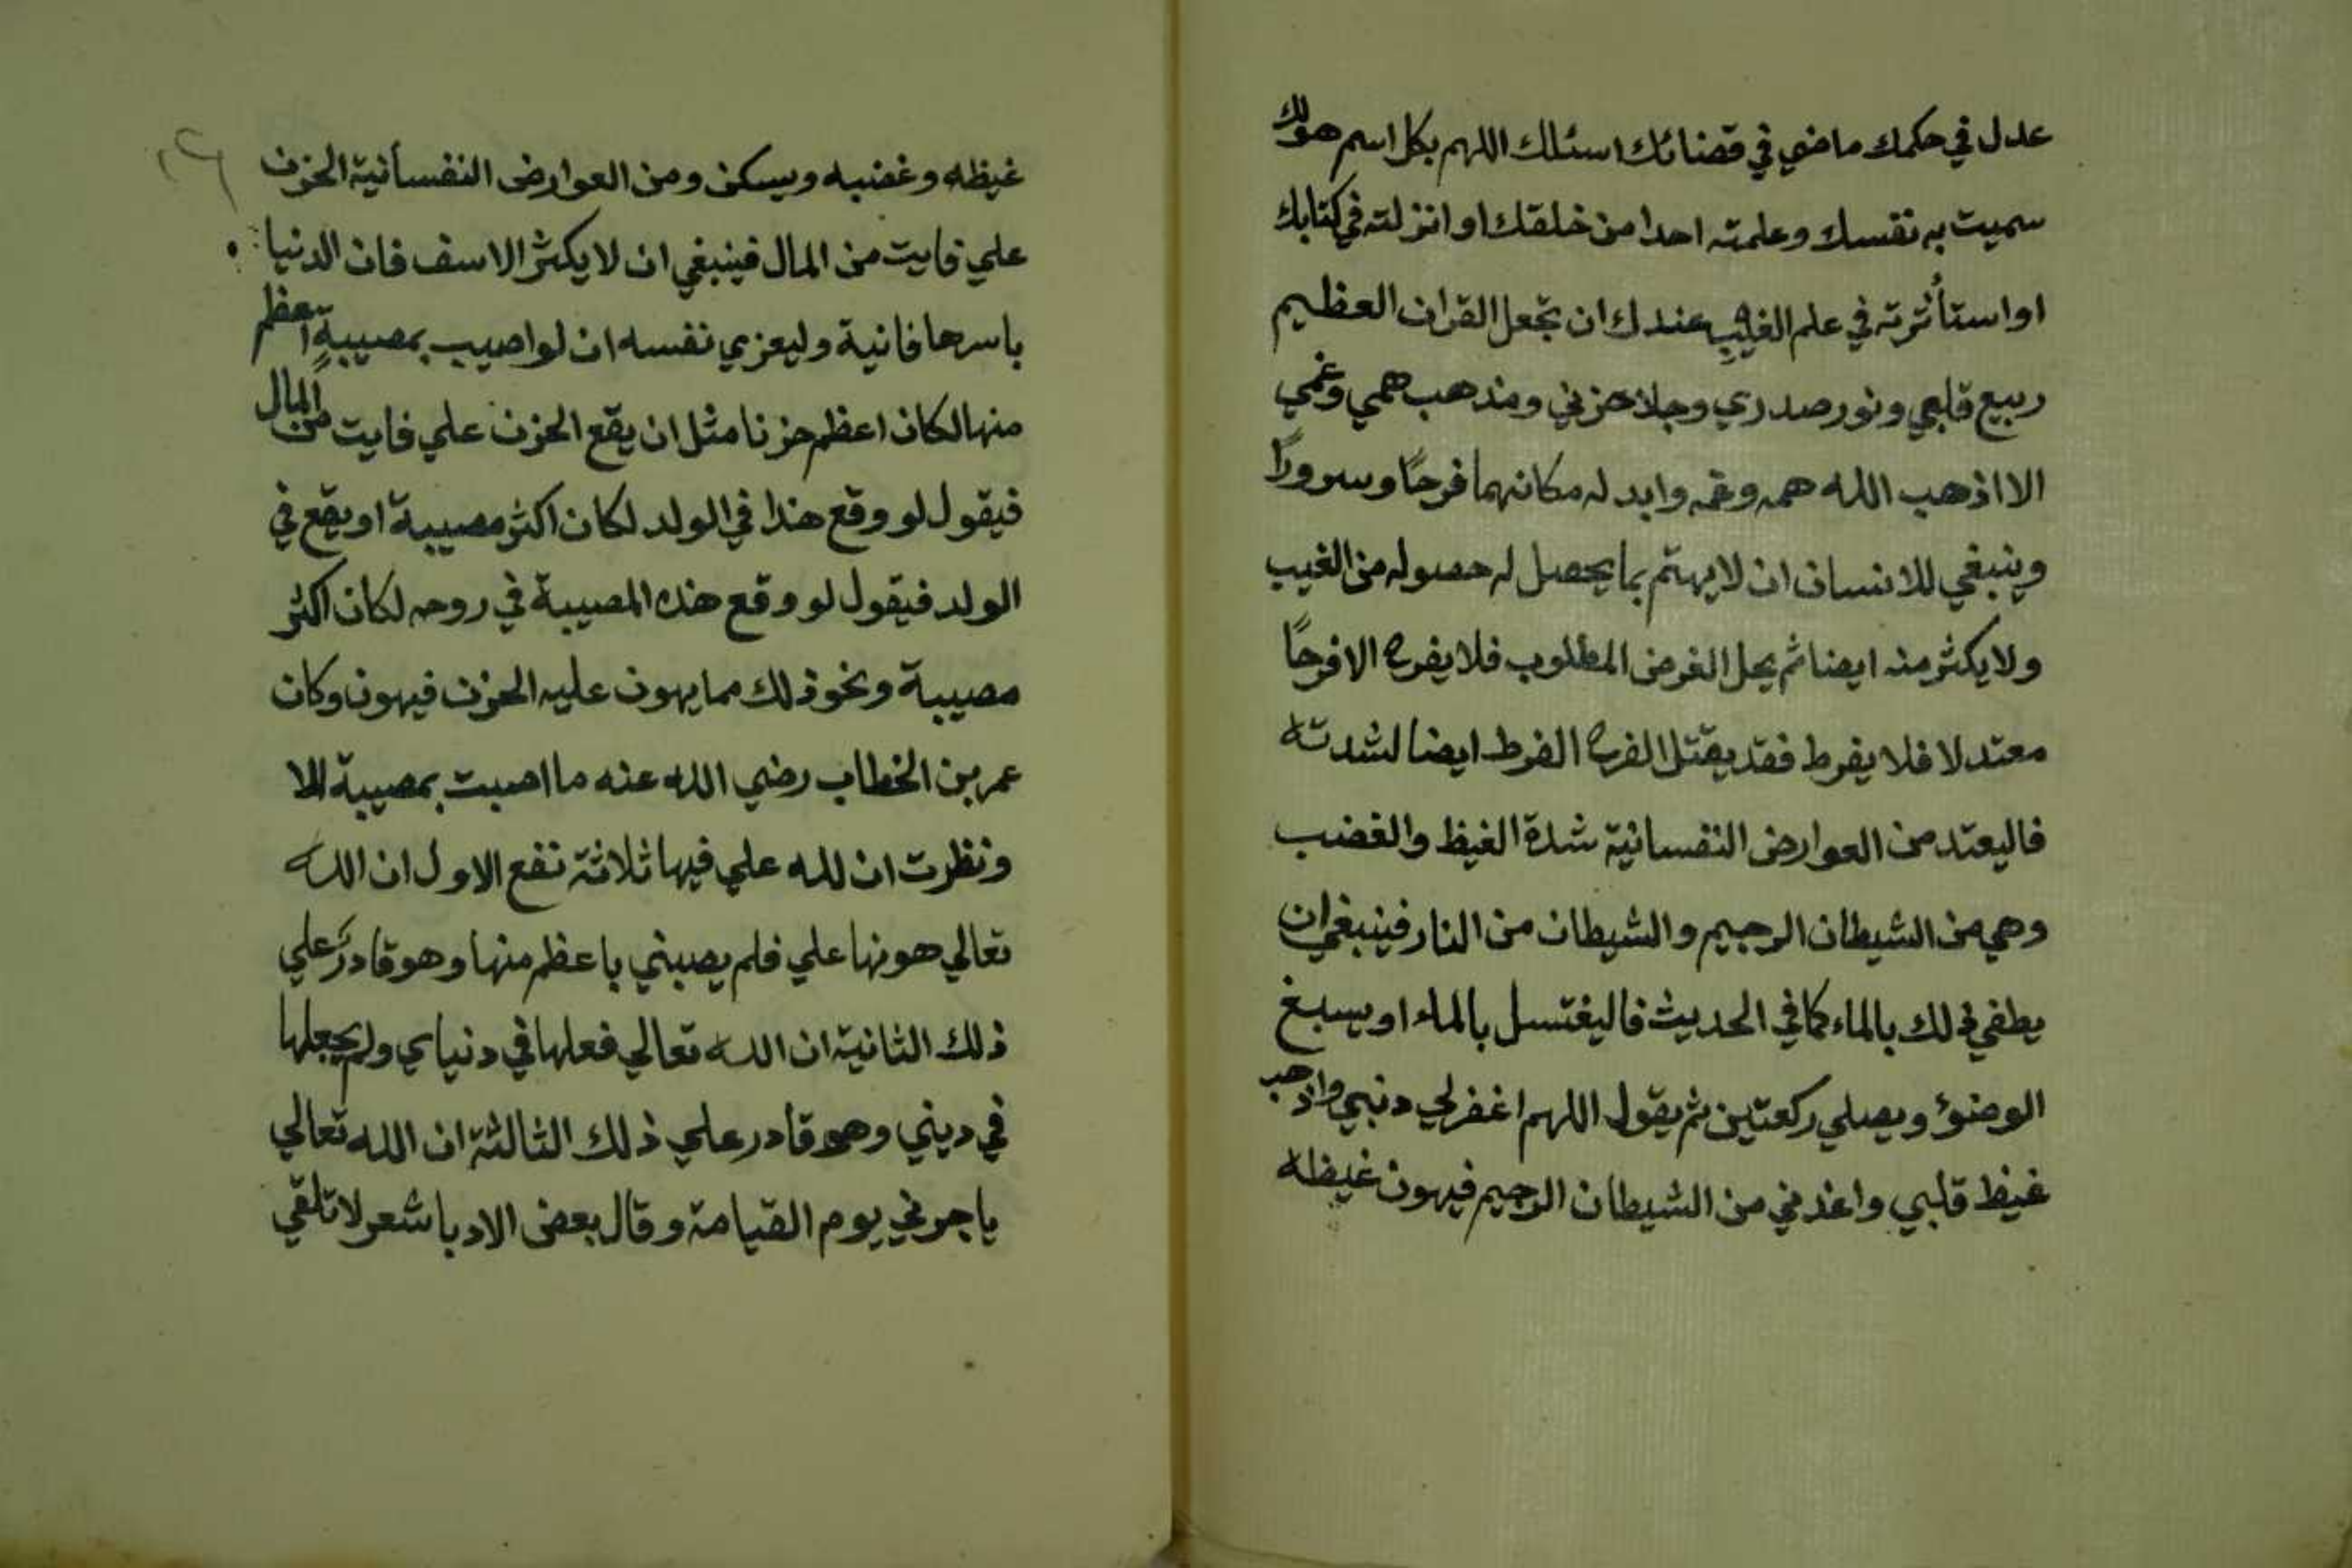 عدل في حكمك ماضي في قضائك اسئلك اللهم بكل اسم هولك
سميت به نفسك وعلمته احدا من خلقك او انزلته في كتابك
او استأثرته في علم الغيب عندك ان تجعل القران العظيم
ربيع قلبي ونور صدري وجلا حزني ومذهب همي وغمي
الا اذهب الله همه وغمه وابدله مكانهما فرحًا وسرورًا
وينبغي للانسان ان لايهتم بما يحصل له حصوله من الغيب
ولا يكثر منه ايضا ثم يحل الغرض المطلوب فلا يفرح الا فرحًا
معتدلا فلا يفرط فقد يقتل الفرح الفرط ايضا لشدته
فاليعتد من العوارض النفسانية شدة الغيظ والغضب
وهي من الشيطان الرجيم والشيطان من النار فينبغي ان
يطفي ذلك بالماء كما في الحديث فاليغتسل بالماء او يسبغ
الوضوء ويصلي ركعتين ثم يقول اللهم اغفرلي دنبي واذهب
غيظ قلبي واعذني من الشيطان الرجيم فيهون غيظه
غيظه وغضبه ويسكن ومن العوارض النفسانية الحزن
علي فايت من المال فينبغي ان لا يكثر الاسف فان الدنيا
باسرها فانية وليعزي نفسه ان لو اصيب بمصيبةٍ اعظم
منها لكان اعظم حزنا مثل ان يقع الحزن علي فايت من المال
فيقول لو وقع هذا في الولد لكان اكثر مصيبة او يقع في
الولد فيقول لو وقع هذه المصيبة في روحه لكان اكثر
مصيبة ونحو ذلك مما يهون عليه الحزن فيهون وكان
عمر بن الخطاب رضي الله عنه ما اصبت بمصيبة الا
ونظرت ان لله علي فيها ثلاثة نفع الاول ان الله
تعالي هونها علي فلم يصبني باعظم منها وهو قادر علي
ذلك الثانية ان الله تعالي فعلها في دنياي ولم يجعلها
في ديني وهو قادر علي ذلك الثالثة ان الله تعالي
ياجرني يوم القيامة وقال بعض الادبا شعر لا تلقي